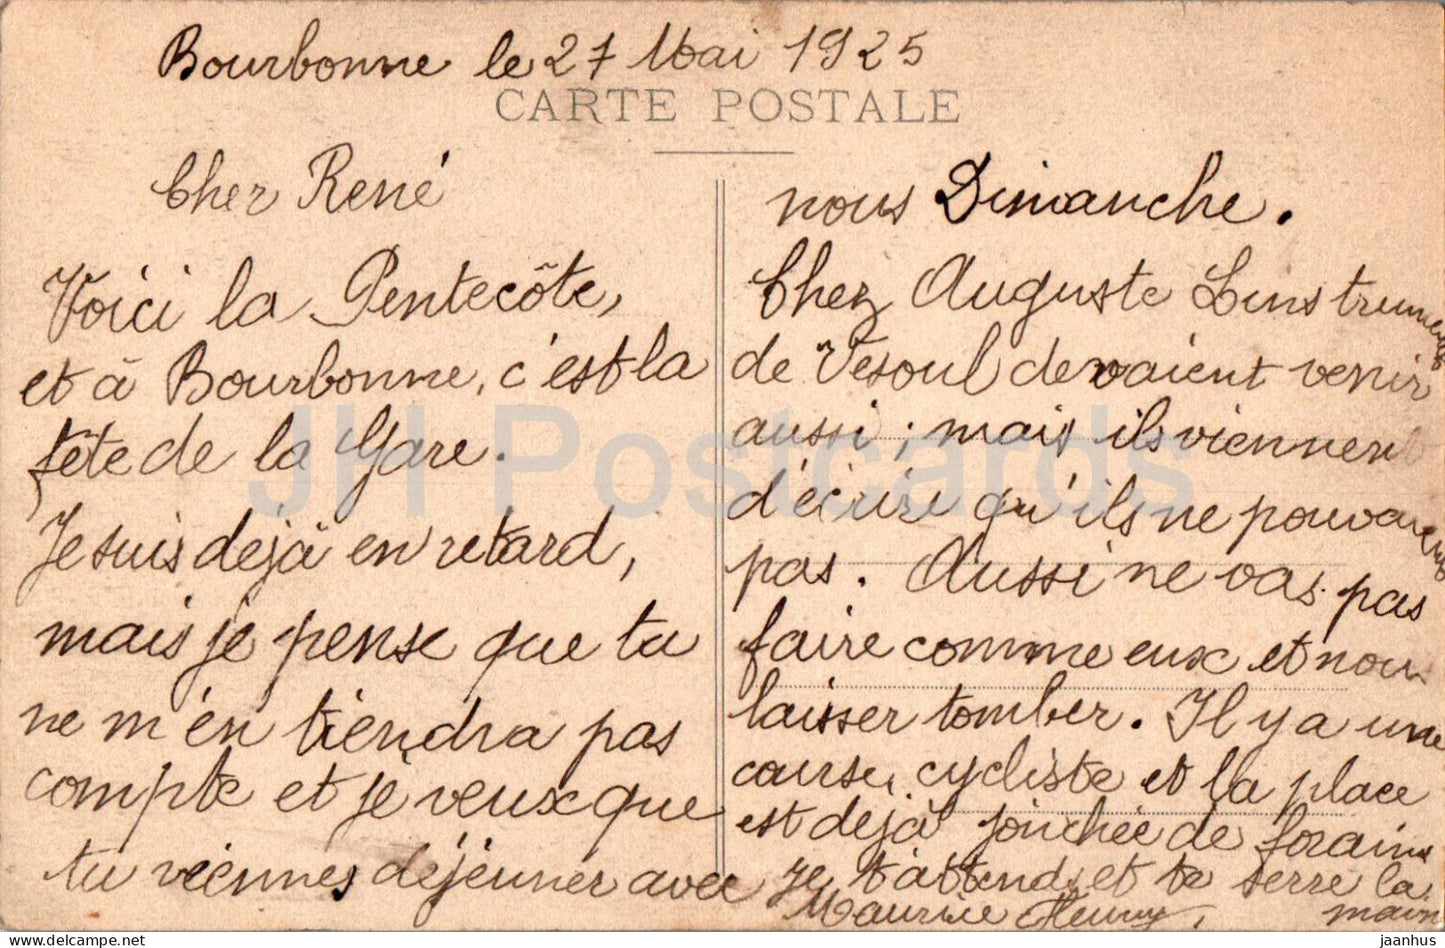 Bourbonne le 27 Mai 1925
CARTE POSTALE
Cher René
Voici la Pentecôte,
et à Bourbonne, c'est la
fête de la Gare.
Je suis déjà en retard,
mais je pense que tu
ne m'en tiendra pas
compte et je veux que
tu viennes déjeuner avec
nous Dimanche.
Chez Auguste
de Vesoul devaient venir
aussi ; mais ils viennent
d'écrire qu'ils ne pouvaient
pas. Aussi ne vas pas
faire comme eux et nous
laisser tomber. Il y a une
course cycliste et la place
est déjà jonchée de forains
Je t'attends et te serre la
main
Maurice Fleury
JH Postcards
jaanhus
delcampe.net